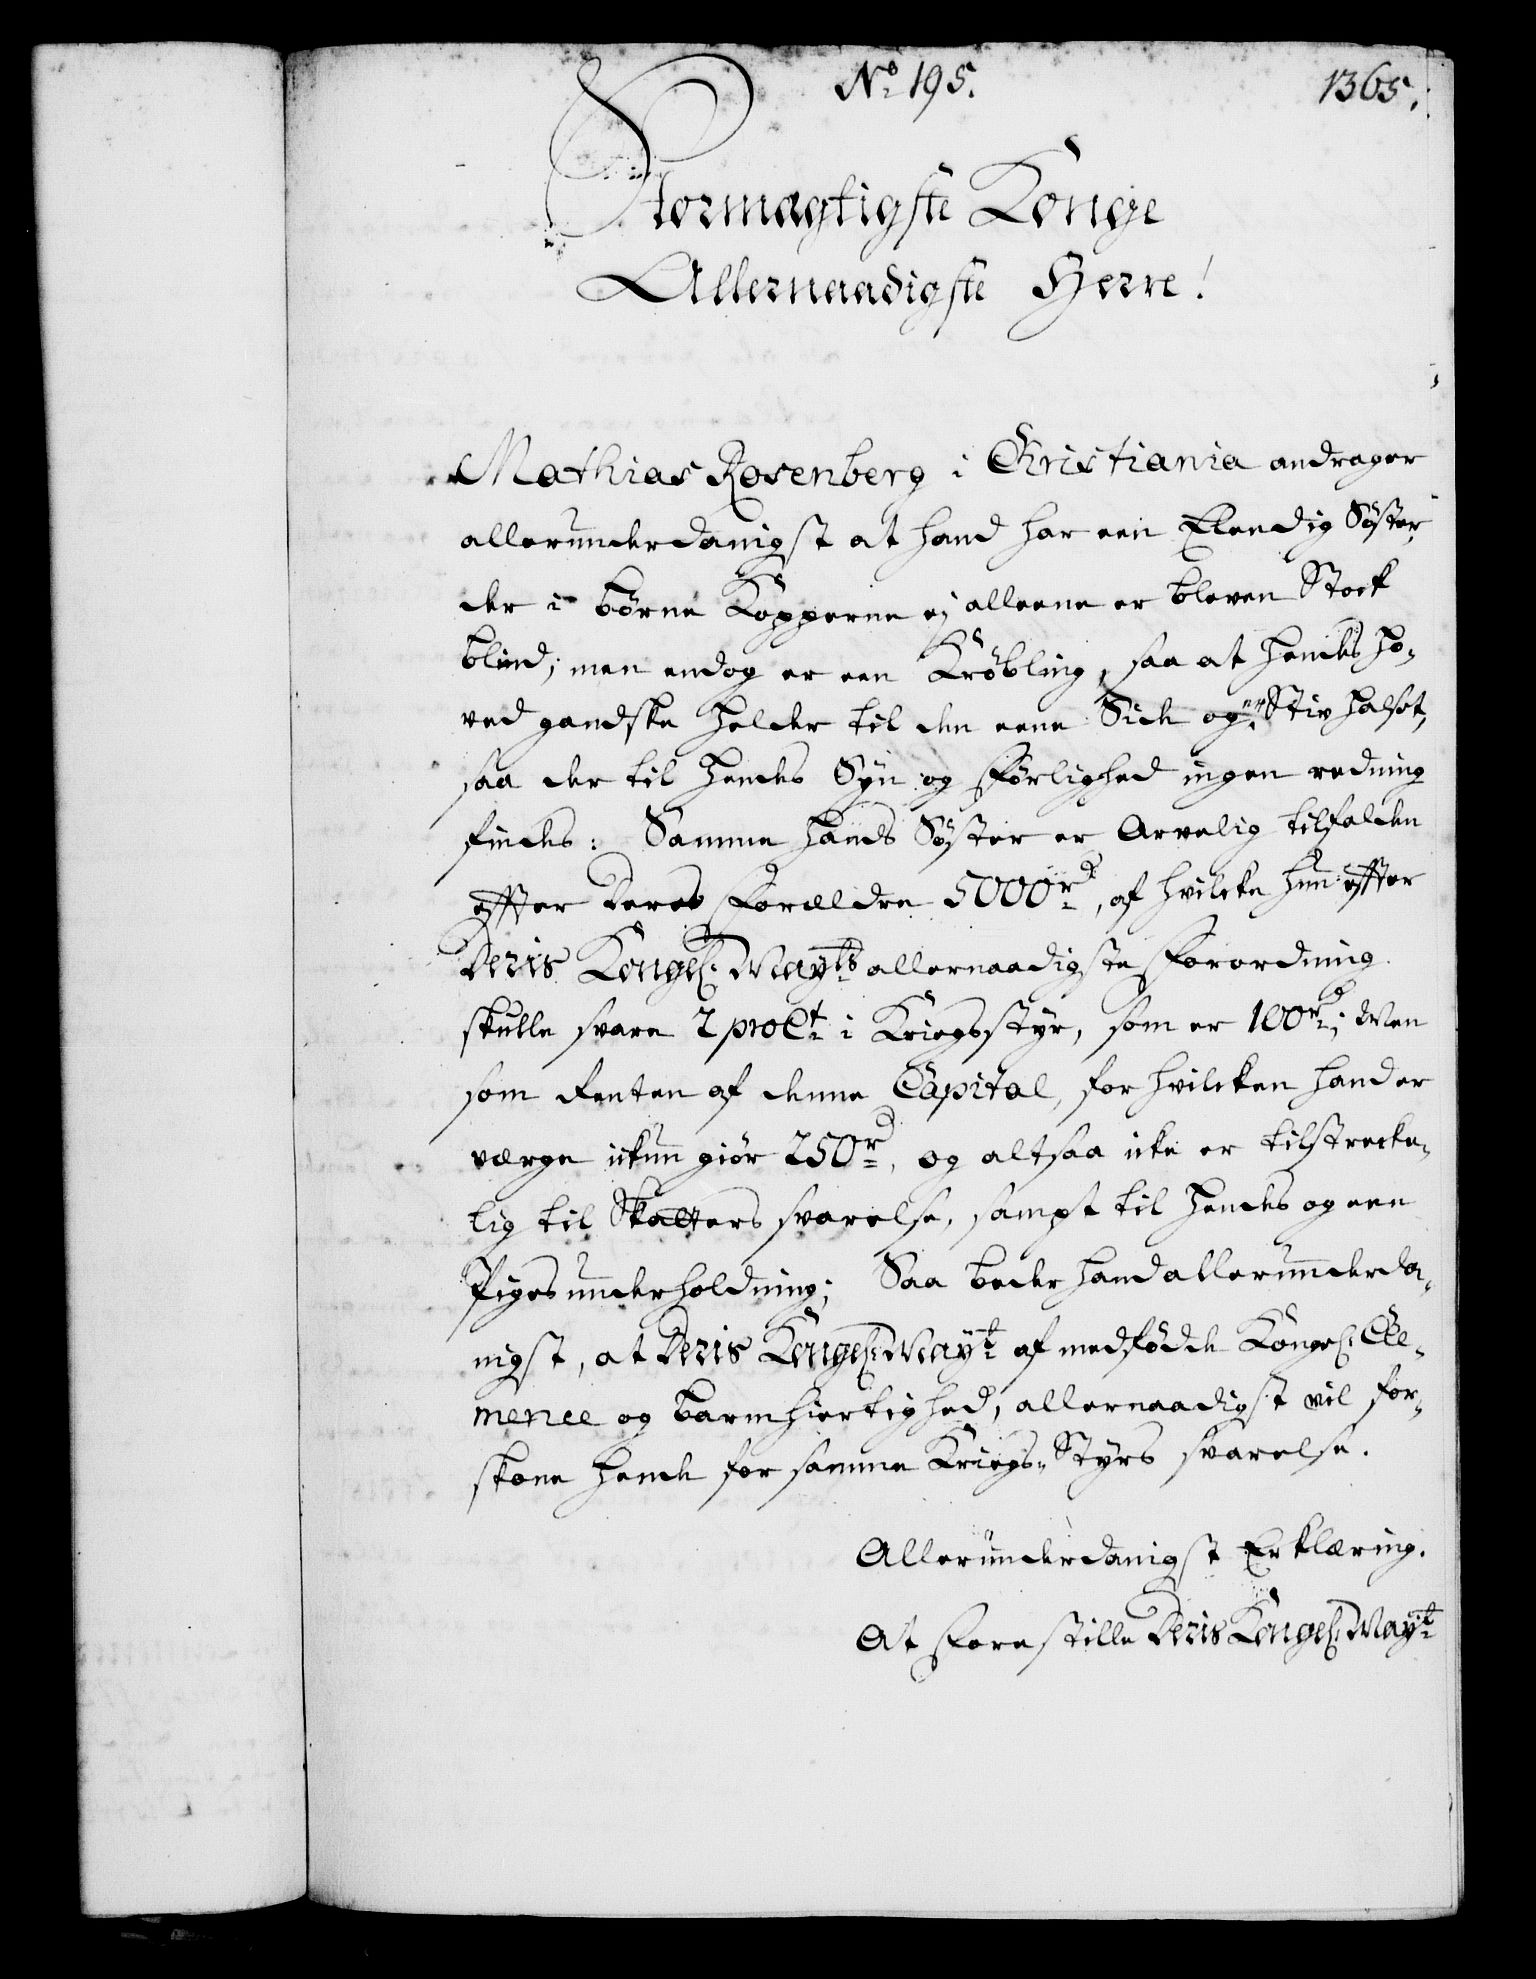 No. 195.
1365.
Stormægtigste Konge
Allernaadigste Herre!
Mathias Rosenberg i Christiania andrager
allerunderdanigst at hand har een Elendig Søster,
der i Børne Kopperne ej alleene er bleven Stock
blind; men endog er een Krøbling, saa at hendes Ho-
ved gandske helder til den eene Side og er Stiv halset,
saa der til hendes Syn og Førlighed ingen redning
findes: Samme hands Søster er Arvelig tilfalden
effter Deres Forældre 5000 rd, af hvilcke hun effter
Deris Kongel. Mayts allernaadigste Forordning
skulle svare 2 pro Ct i Kriegsstyr, som er 100 rd; Men
som Renten af denne Capital, for hvilcken hand er
værge ickun giør 250 rd, og altsaa icke er tilstrecke-
lig til Skatters svarelse, sampt til hendes og een
Piges underholdning; Saa beder hand allerunderda-
nigst, at Deris Kongel. Mayt af medfødde Kongel. Cle-
mence og Barmhiertighed, allernaadigst vil for-
skone hende for samme Kriegs-Styrs svarelse.
Allerunderdanigst Erklæring.
At Forestille Deris Kongel. Mayt